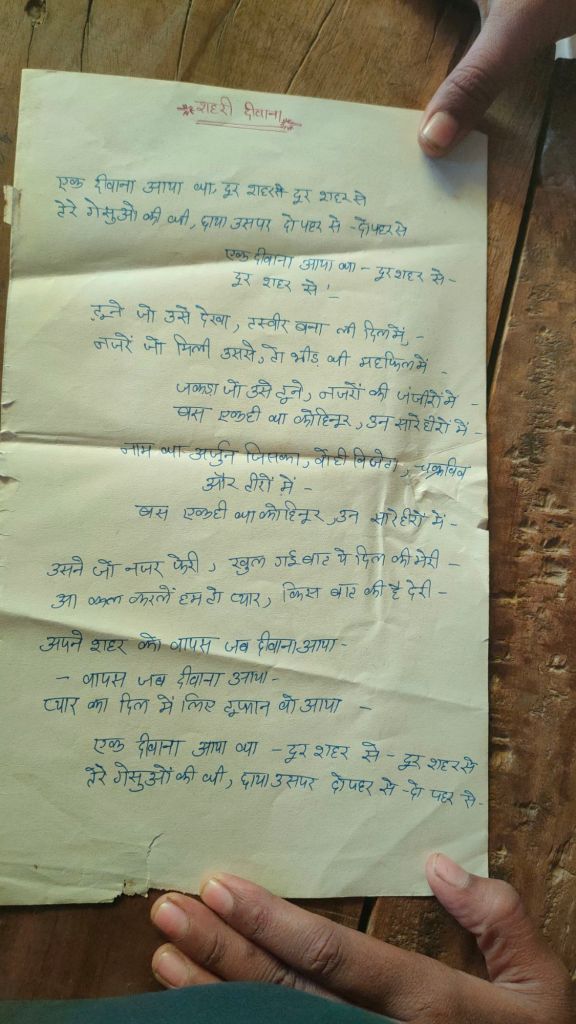 शहरी दीवाना
एक दीवाना आया था, दूर शहर से दूर शहर से
तेरे गेसुओ की थी, छाया उसपर दो पहर से - दोपहर से
एक दीवाना आया था - दूर शहर से -
दूर शहर से !-
तूने जो उसे देखा, तस्वीर बना ली दिल में, -
नजरें जो मिली उससे, तो भीड़ थी महफिल में -
जकड़ा जो उसे तूने, नजरों की जंजीरों में -
बस एकही था कोहिनूर, उन सारे हीरों में -
नाम था अर्जुन जिसका, वोही विजेता,
और तीरों में -
बस एकही था कोहिनूर, उन सारे हीरों में -
उसने जो नजर फेरी, खुल गई बात ये दिल की मेरी -
आ कल करलें हम तो प्यार, किस बात की है देरी -
अपने शहर को वापस जब दीवाना आया -
- वापस जब दीवाना आया -
प्यार का दिल में लिए तूफान वो आया -
एक दीवाना आया था - दूर शहर से - दूर शहर से
तेरे गेसुओं की थी, छाया उसपर दो पहर से - दो पहर से -